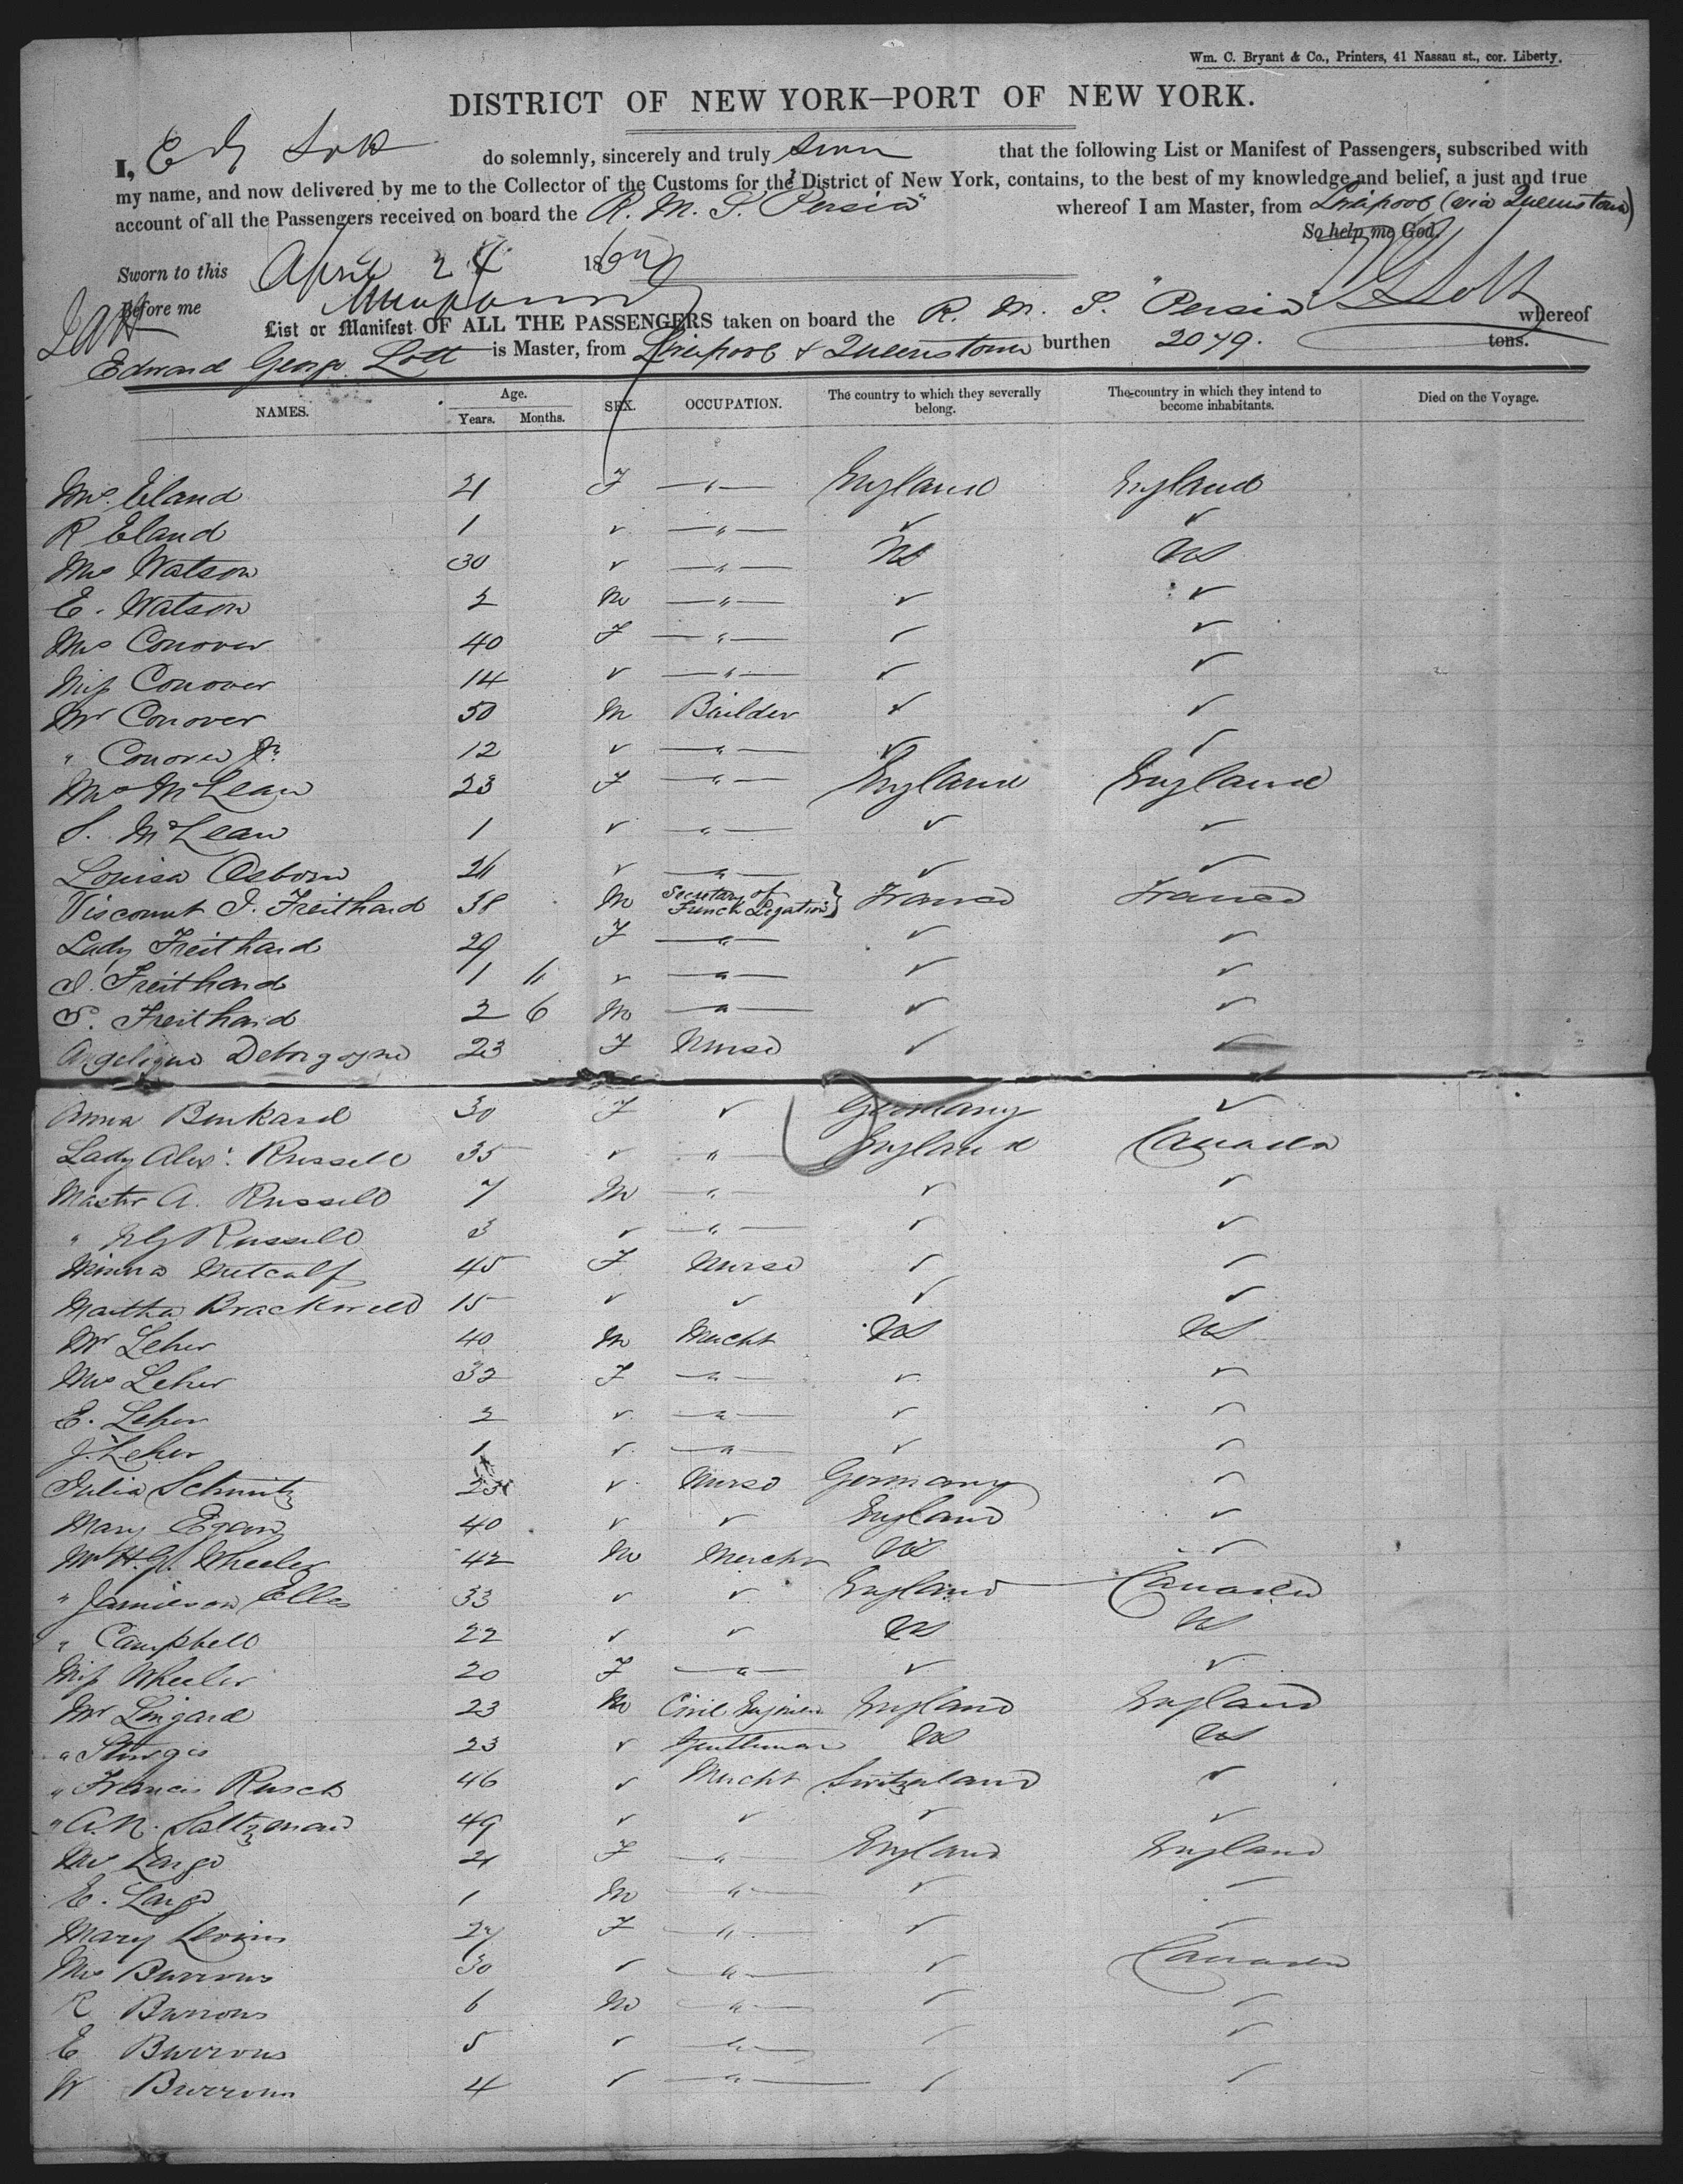 Wm. C. Bryant & Co., Printers, 41 Nassau st., cor. Liberty.
DISTRICT OF NEW YORK—PORT OF NEW YORK.
I, E G Lott do solemnly, sincerely and truly swear that the following List or Manifest of Passengers, subscribed with
my name, and now delivered by me to the Collector of the Customs for the District of New York, contains, to the best of my knowledge and belief, a just and true
account of all the Passengers received on board the R. M. S. "Persia" whereof I am Master, from Liverpool (via Queenstown)
So help me God.
Sworn to this April 24 186 E G Lott
Before me
List or Manifest OF ALL THE PASSENGERS taken on board the R. M. S. "Persia" whereof
Edward George Lott is Master, from Liverpool & Queenstown burthen 2079. tons.
NAMES. Age. Years. Months. SEX. OCCUPATION. The country to which they severally belong. The country in which they intend to become inhabitants. Died on the Voyage.
Mrs. Eland 21 F —"— England England
R Eland 1 ✓ —"— ✓ ✓
Mrs Watson 30 ✓ —"— US US
E. Watson 2 M —"— ✓ ✓
Mrs Conover 40 F —"— ✓ ✓
Miss Conover 14 ✓ —"— ✓ ✓
Mr Conover 50 M Builder ✓ ✓
" Conover Jr. 12 ✓ —"— ✓ ✓
Mrs McLean 23 F —"— England England
S. McLean 1 ✓ —"— ✓ ✓
Louisa Osborn ✓ —"— ✓ ✓
Viscount J. Freithard 38 M Secretary of French Legation } France France
Lady Freithard 29 F —"— ✓ ✓
J. Freithard 1 ✓ —"— ✓ ✓
S. Freithard 2 6 M —"— ✓ ✓
Angelique 23 F Nurse ✓ ✓
Anna Benkard 30 F ✓ Germany ✓
Lady Alexr. Russell 35 ✓ " England Canada
Master A. Russell 7 M —"— ✓ ✓
" Russell 3 ✓ —"— ✓ ✓
Metcalf 45 F Nurse ✓ ✓
Martha Brackwell 15 ✓ ✓ ✓ ✓
Mr Leher 40 M Mercht US US
Mrs Leher 32 F —"— ✓ ✓
E. Leher 2 ✓ —"— ✓ ✓
J. Leher 1 ✓ —"— ✓ ✓
Julia Schmitz 25 ✓ Nurse Germany ✓
Mary Egan 40 ✓ ✓ England ✓
Mr H. G. Wheeler 42 M Mercht US ✓
" Jamieson Elles 33 ✓ ✓ England Canada
" Campbell 22 ✓ ✓ US US
Miss Wheeler 20 F —"— ✓ ✓
Mr Lingard 23 M Civil Engineer England England
" Sturgis 23 ✓ Gentleman US US
" Francis Rusch 46 ✓ Mercht Switzerland ✓
" A. N. Saltzman 49 ✓ ✓ ✓ ✓
Mrs Largo 21 F —"— England England
E. Largo 1 M —"— ✓ ✓
Mary Levins 27 F —"— ✓ ✓
Mrs Burrows 30 ✓ —"— ✓ Canada
R Burrows 6 M —"— ✓ ✓
E Burrows 5 ✓ —"— ✓ ✓
W Burrows 4 ✓ —"— ✓ ✓